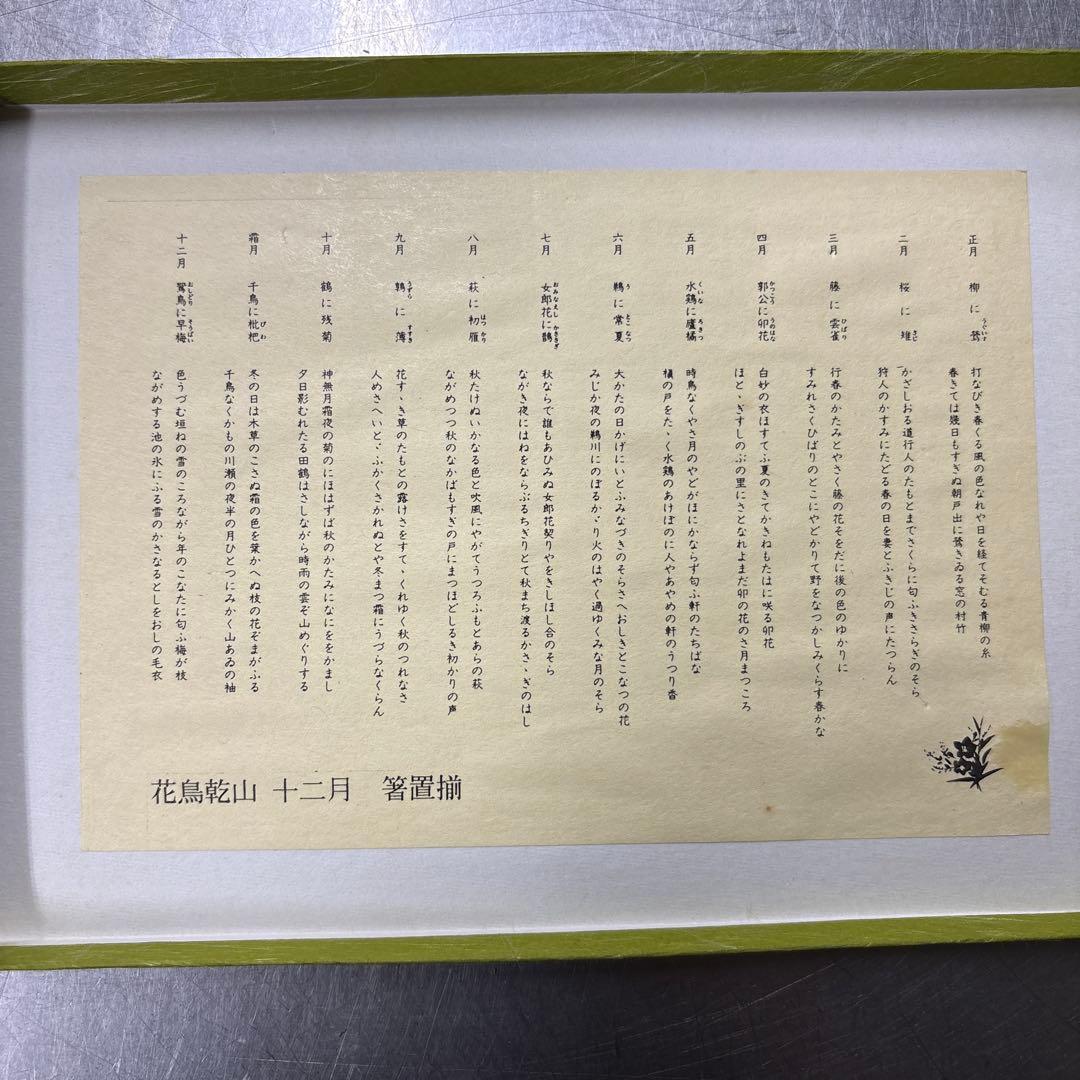 正月 柳に鶯
打なびき春くる風の色なれや日を経てそむる青柳の糸
春きては幾日もすぎぬ朝戸出に鶯きゐる窓の村竹
二月 桜に雉
かざしおる道行人のたもとまでさくらに匂ふきさらぎのそら
狩人のかすみにたどる春の日を妻どふきじの声にたつらん
三月 藤に雲雀
行春のかたみとやさく藤の花そをだに後の色のゆかりに
すみれさくひばりのとこにやどかりて野をなつかしみくらす春かな
四月 郭公に卯花
白妙の衣ほすてふ夏のきてかきねもたはに咲る卯花
ほとゝぎすしのぶの里にさとなれよまだ卯の花のさ月まつころ
五月 水鶏に廬橘
時鳥なくやさ月のやどがほにかならず匂ふ軒のたちばな
槇の戸をたゝく水鶏のあけぼのに人やあやめの軒のうつり香
六月 鵜に常夏
大かたの日かげにいとふみなづきのそらさへおしきとこなつの花
みじか夜の鵜川にのぼるかゞり火のはやく過ゆくみな月のそら
七月 女郎花に鵲
秋ならで誰もあひみぬ女郎花契りやをきしほし合のそら
ながき夜にはねをならぶるちぎりとて秋まち渡るかさゝぎのはし
八月 萩に初雁
秋たけぬいかなる色と吹風にやがてうつろふもとあらの萩
ながめつつ秋のなかばもすぎの戸にまつほどしるき初かりの声
九月 鶉に薄
花すゝき草のたもとの露けさをすてゝくれゆく秋のつれなさ
人めさへいとゞふかくさかれぬとや冬まつ霜にうづらなくらん
十月 鶴に残菊
神無月霜夜の菊のにほはずば秋のかたみになにををかまし
夕日影むれたる田鶴はさしながら時雨の雲ぞ山めぐりする
霜月 千鳥に枇杷
冬の日は木草のこさぬ霜の色を葉かへぬ枝の花ぞまがふる
千鳥なくかもの川瀬の夜半の月ひとつにみかく山あゐの袖
十二月 鴛鳥に早梅
色うづむ垣ねの雪のころながら年のこなたに匂ふ梅が枝
ながめする池の氷にふる雪のかさなるとしをおしの毛衣
花鳥乾山 十二月 箸置揃